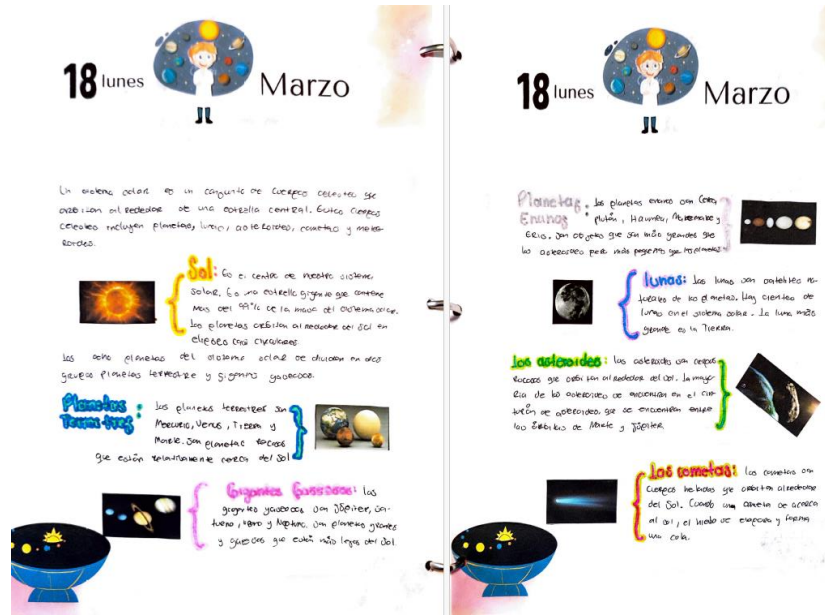 18 lunes Marzo
Un sistema solar es un conjunto de cuerpos celestes que
orbitan alrededor de una estrella central. Estos cuerpos
celestes incluyen planetas, lunas, asteroides, cometas y mete-
oroides.
Sol: Es el centro de nuestro sistema
solar. Es una estrella gigante que contiene
mas del 99% de la masa del sistema solar.
Los planetas orbitan alrededor del sol en
elipses casi circulares
Los ocho planetas del sistema solar se dividen en dos
grupos planetas terrestre y gigantes gaseosos.
Planetas
Terrestres: Los planetas terrestres son
Mercurio, Venus, Tierra y
Marte. Son planetas rocosos
que están relativamente cerca del Sol
Gigantes Gaseosos: Los
gigantes gaseosos son Júpiter, Sa-
turno, Urano y Neptuno. Son planetas grandes
y gaseosos que están más lejos del Sol.
18 lunes Marzo
Planetas
Enanos: Los planetas enanos son Ceres
plutón, Haumea, Makemake y
Eris. Son objetos que son más grandes que
los asteroides pero más pequeños que los planetas.
lunas: Las lunas son satélites na-
turales de los planetas. Hay cientos de
lunas en el sistema solar. La luna más
grande es la Tierra.
Los asteroides: Los asteroides son cuerpos
Rocosos que orbitan alrededor del Sol. La mayo-
ría de los asteroides se encuentran en el cin-
turón de asteroides, que se encuentran entre
las órbitas de Marte y Júpiter.
Los cometas: Los cometas son
cuerpos helados que orbitan alrededor
del Sol. Cuando un cometa se acerca
al sol, el hielo se evapora y forma
una cola.